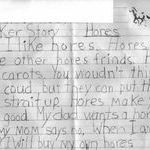 ker Story Hores
I like hores. Hores
e other hores frinds. T
carots. You wouldn't thin
coud but they can put th
strait up hores make m
good My dad wants a hors
my Mom says no. When I am
I will buy my own hores